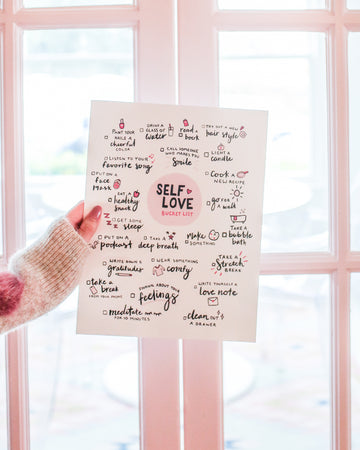 PAINT YOUR
NAILS A
cheerful
COLOR
DRINK A
GLASS OF
water
read a
book
TRY OUT A NEW
hair style
LISTEN TO YOUR
favorite song
CALL SOMEONE
WHO MAKES YOU
Smile
LIGHT A
candle
PUT ON A
face
Mask
EAT A
healthy
snack
SELF
LOVE
BUCKET LIST
COOK A
NEW RECIPE
go for
a walk
GET SOME
sleep
PUT ON A
podcast
TAKE A
deep breath
Make
SOMETHING
TAKE A
bubble
bath
WRITE DOWN 5
gratitudes
WEAR SOMETHING
comfy
TAKE A
Stretch
BREAK
take a
break
FROM YOUR PHONE
ABOUT YOUR
feelings
WRITE YOURSELF A
love note
meditate
FOR 10 MINUTES
clean OUT
A DRAWER